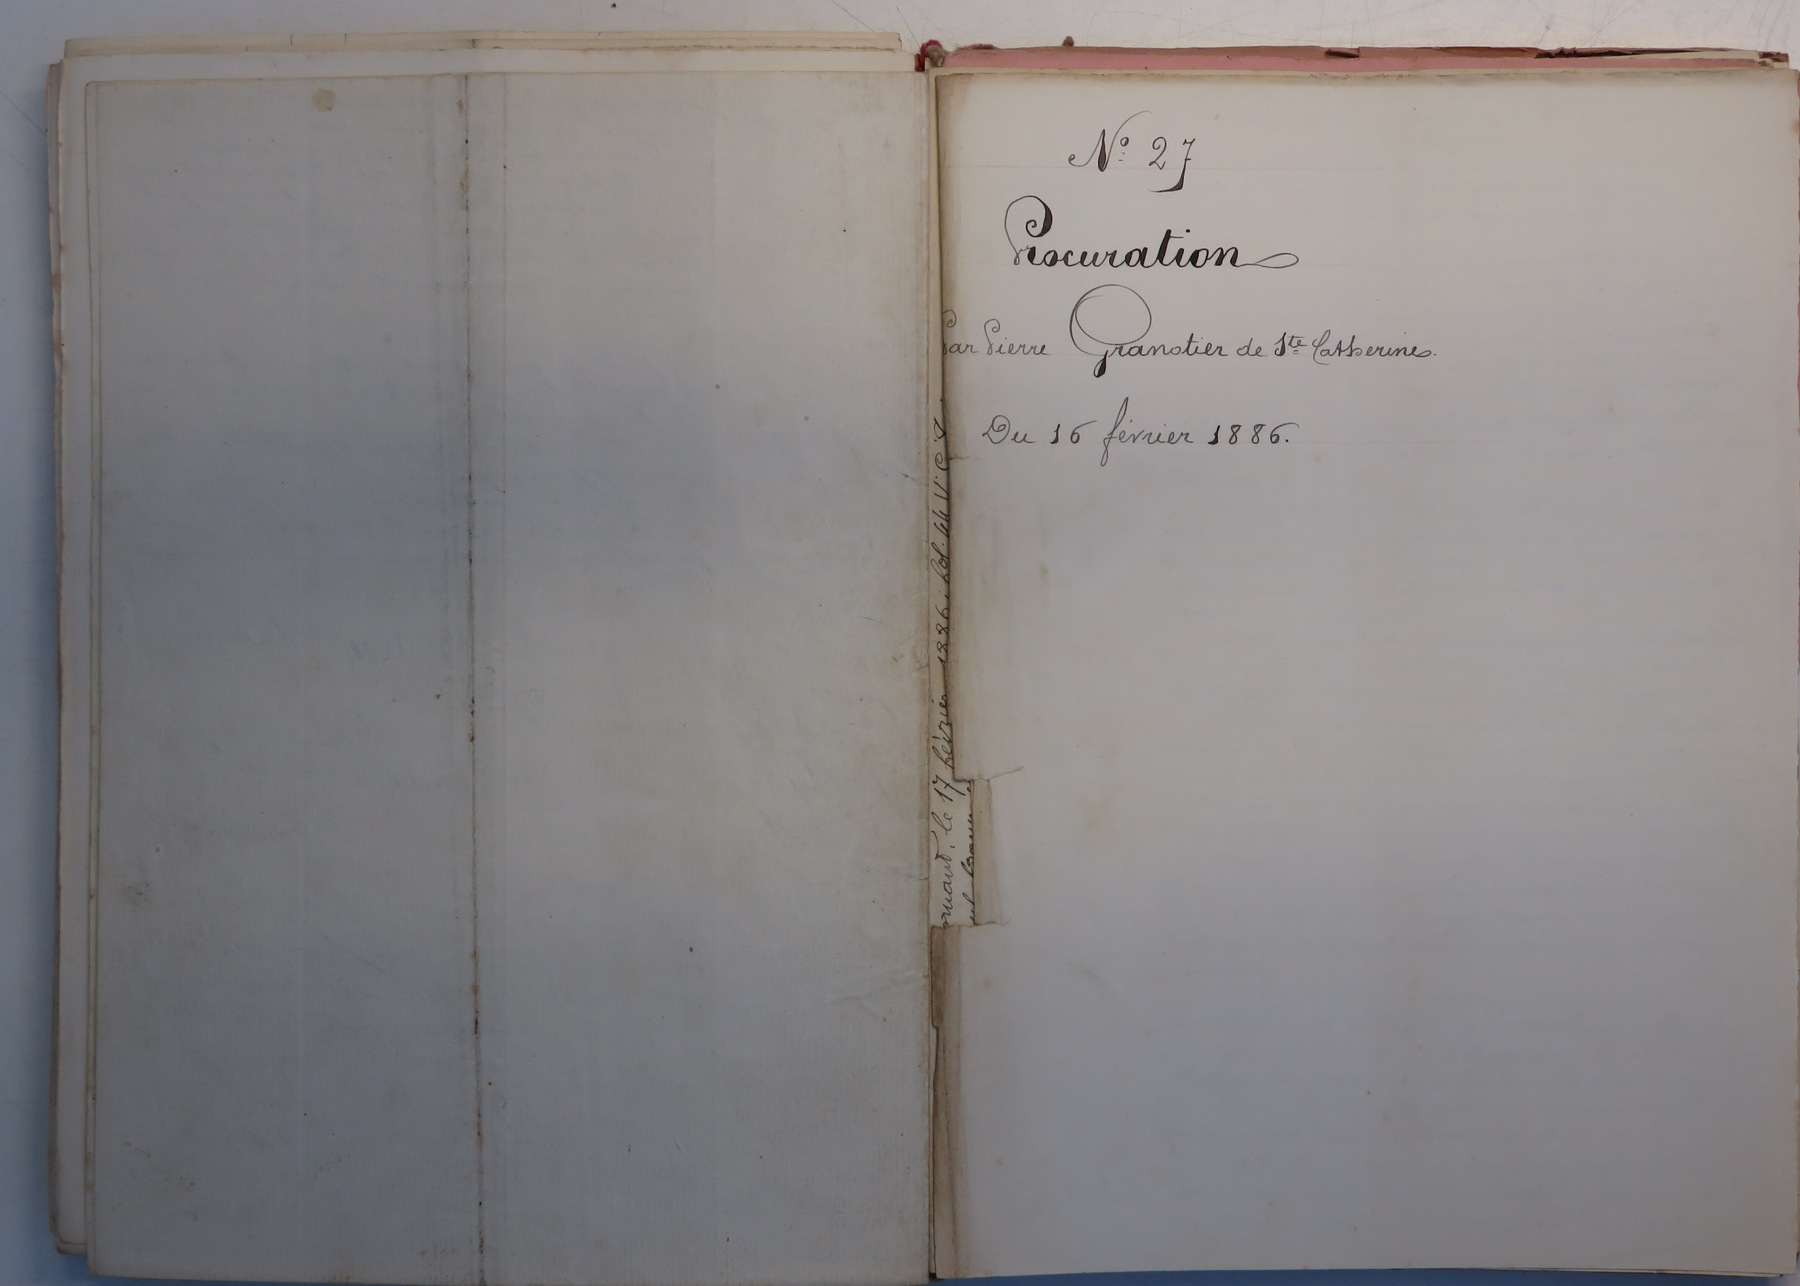 Nº 27
Procuration
Par Pierre Granotier de Ste Catherine.
Du 16 février 1886.
le 17 février 1886; fol. 44 V. C.